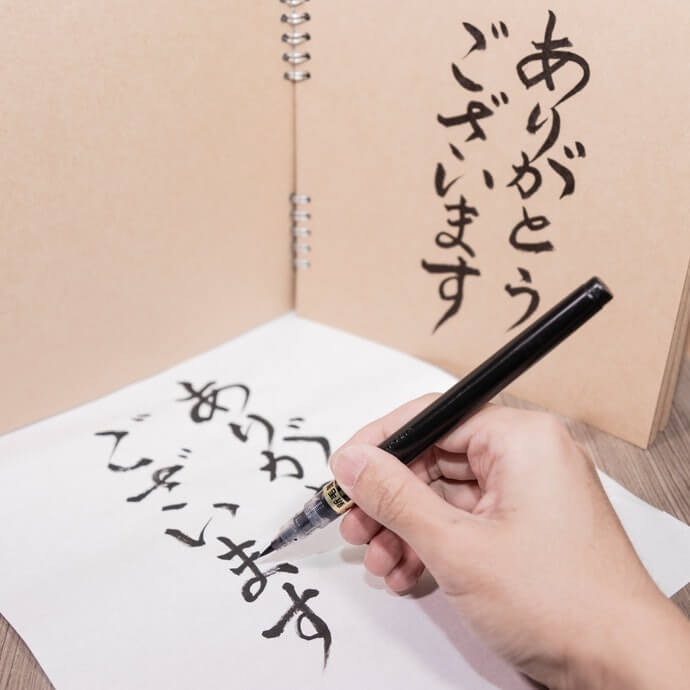 ありがとう
ございます
ありが
ございます